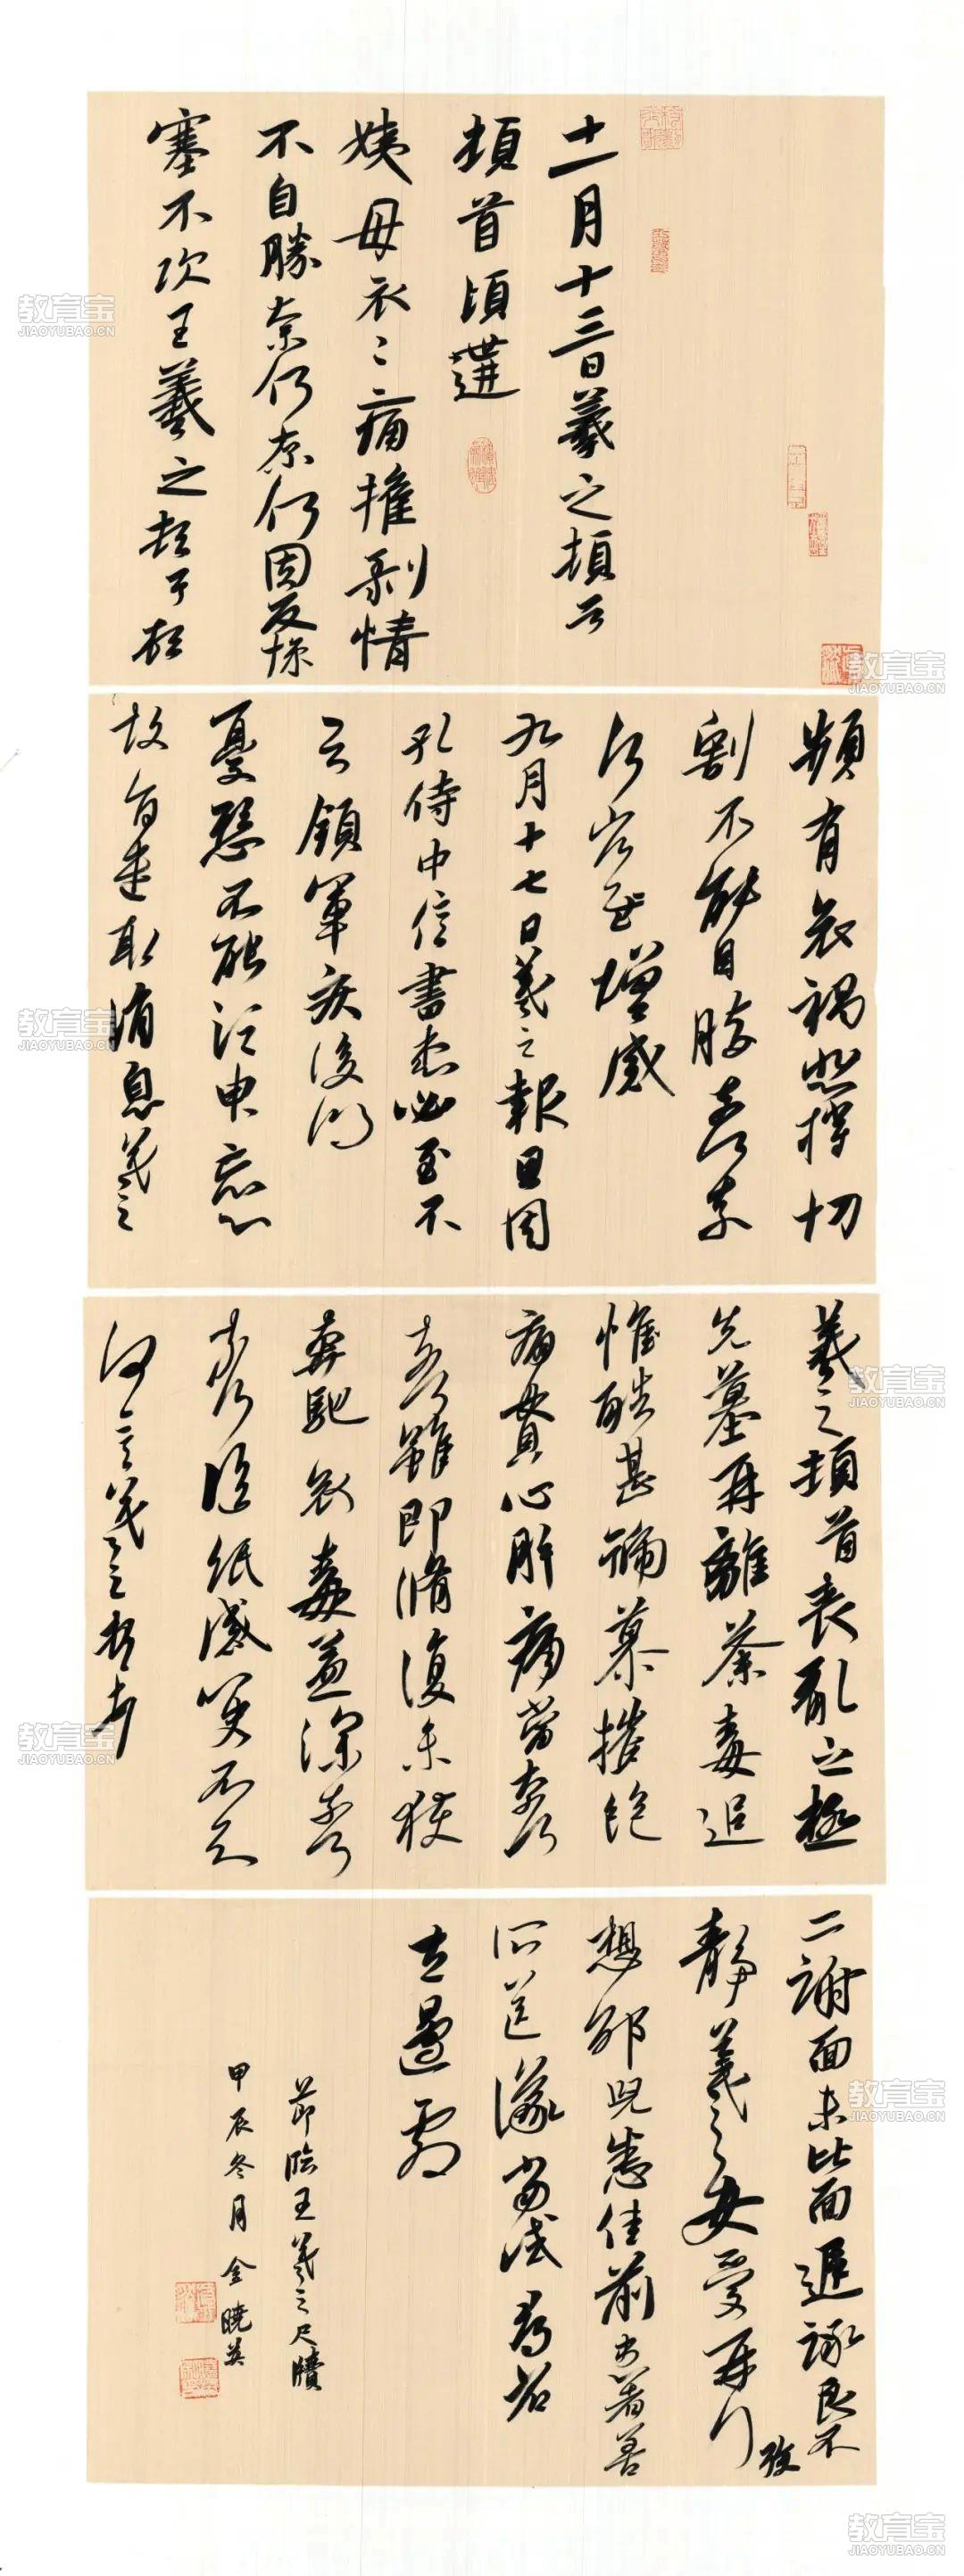 十一月十三日羲之頓首
頓首頃遘
姨母哀=痛摧剥情
不自勝奈何奈何因反慘
塞不次王羲之頓首頓首
頻有哀禍悲摧切
割不能自勝奈何奈
何省慰增感
九月十七日羲之報且因
孔侍中信書想必至不
知領軍疾後問
憂懸不能須臾忘心
故旨遣取消息羲之
羲之頓首喪亂之極
先墓再離荼毒追
惟酷甚號慕摧絕
痛貫心肝痛當奈何
奈何雖即脩復未獲
奔馳哀毒益深奈何
奈何臨紙感哽不知
何言羲之頓首
二謝面未比面遲詠良不
靜羲之女愛再拜
想邰兒悉佳前患者善
所送議當試尋省
左邊劇
節臨王羲之尺牘
甲辰冬月金曉英
教育宝
JIAOYUBAO.CN
教育宝
JIAOYUBAO.CN
教育宝
JIAOYUBAO.CN
教育宝
JIAOYUBAO.CN
教育宝
JIAOYUBAO.CN
教育宝
JIAOYUBAO.CN
教育宝
JIAOYUBAO.CN